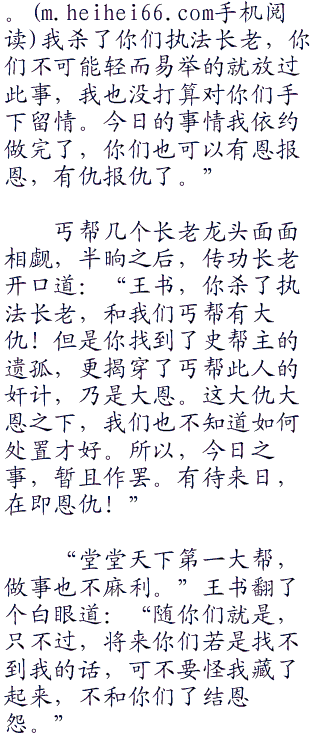 。(m.heihei66.com手机阅
读)我杀了你们执法长老，你
们不可能轻而易举的就放过
此事，我也没打算对你们手
下留情。今日的事情我依约
做完了，你们也可以有恩报
恩，有仇报仇了。”
丐帮几个长老龙头面面
相觑，半晌之后，传功长老
开口道：“王书，你杀了执
法长老，和我们丐帮有大
仇！但是你找到了史帮主的
遗孤，更揭穿了丐帮此人的
奸计，乃是大恩。这大仇大
恩之下，我们也不知道如何
处置才好。所以，今日之
事，暂且作罢。有待来日，
在即恩仇！”
“堂堂天下第一大帮，
做事也不麻利。”王书翻了
个白眼道：“随你们就是，
只不过，将来你们若是找不
到我的话，可不要怪我藏了
起来，不和你们了结恩
怨。”